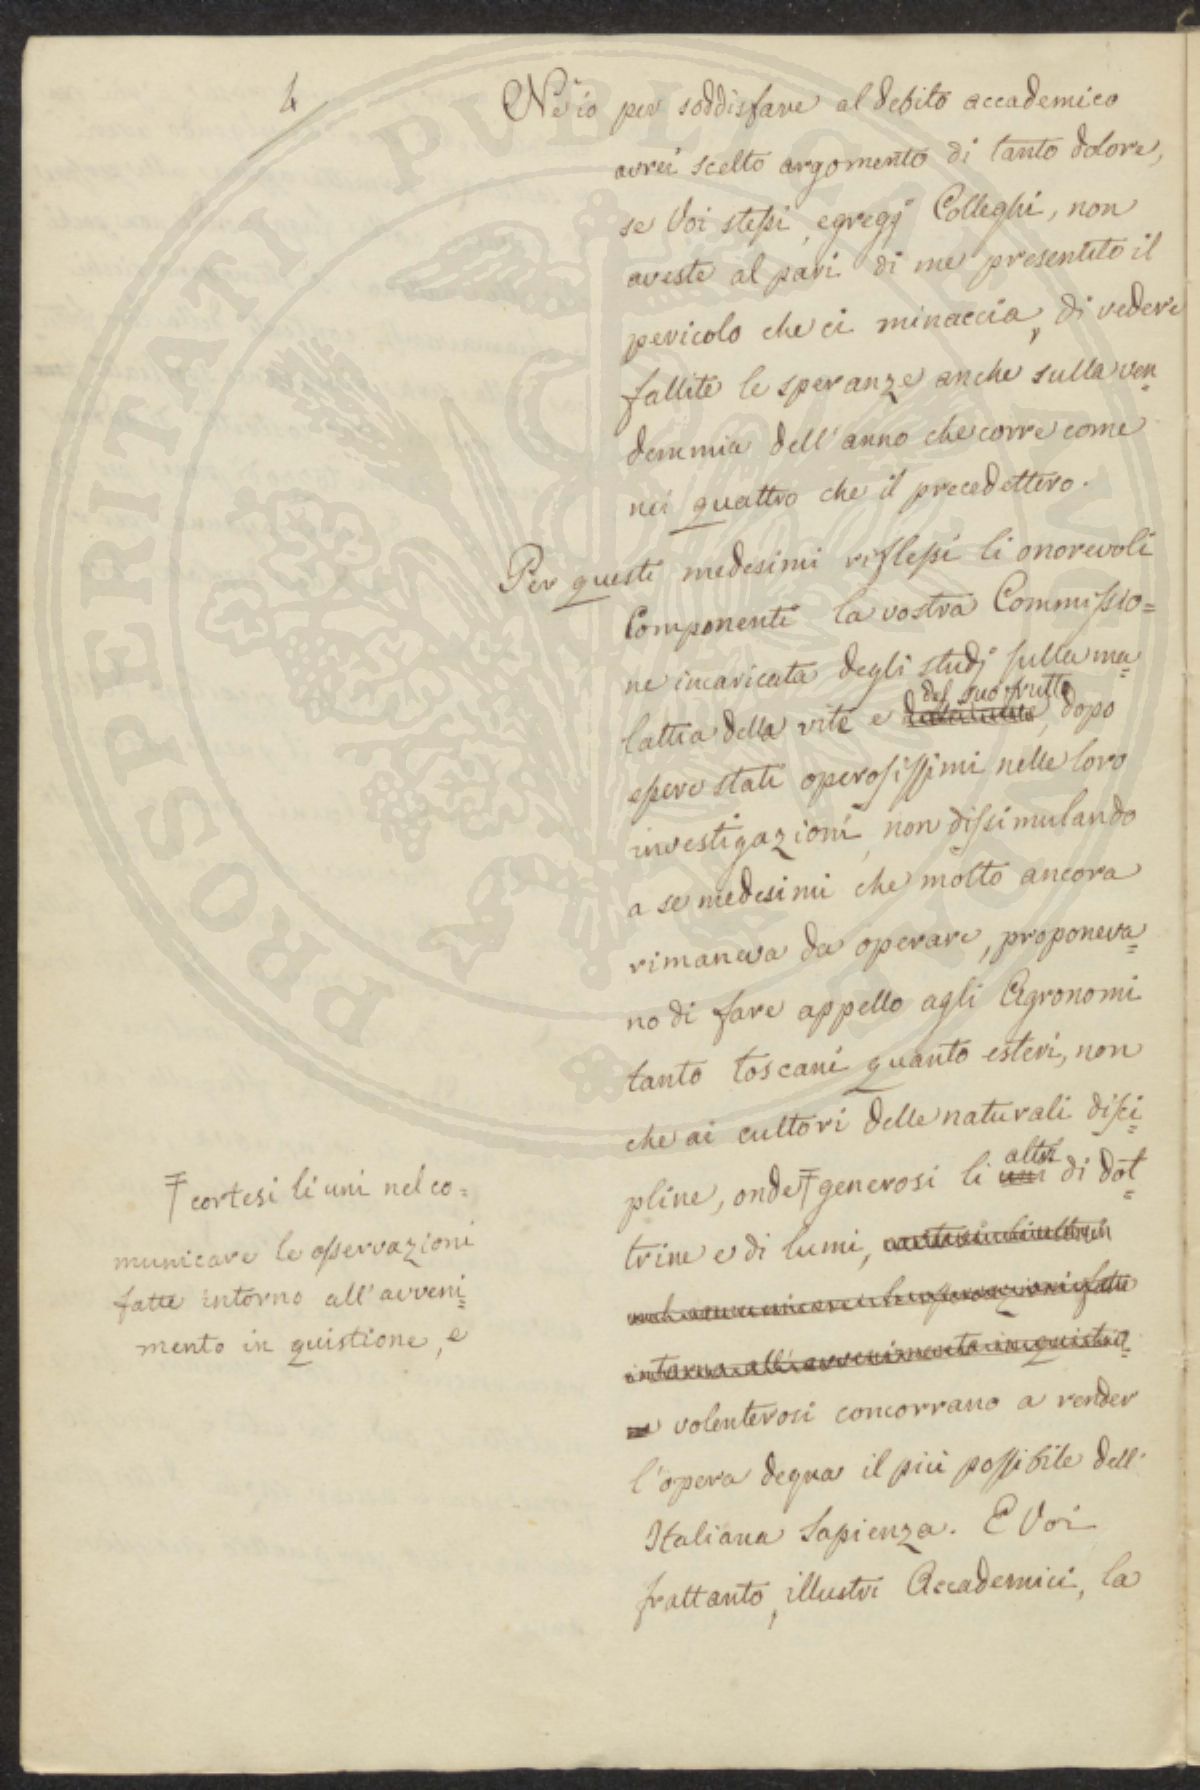 4
Ne io per soddisfare al debito accademico
avrei scelto argomento di tanto dolore,
se Voi steſsi, egregj Colleghi, non
aveste al pari di me presentito il
pericolo che ci minaccia, di vedere
fallite le speranze anche sulla ven=
demmia dell'anno che corre come
nei quattro che il precedettero.
Per questi medesimi rifleſsi li onorevoli
Componenti la vostra Commiſsio=
ne incaricata degli studj sulla ma=
del suo frutto
lattia della vite e , dopo
eſsere stati operosiſsimi nelle loro
investigazioni, non diſsimulando
a se medesimi che molto ancora
rimaneva da operare, proponeva=
no di fare appello agli Agronomi
tanto toscani quanto esteri, non
che ai cultori delle naturali disci=
altri
pline, onde Ŧ generosi li uni di dot=
trine e di lumi, cortesi li altri
nel comunicare le oſservazioni fatte
intorno all'avvenimento in quistio=
ne volenterosi concorrano a render
l'opera degna il più poſsibile dell'
Italiana Sapienza. E Voi
frattanto, illustri Accademici, la
Ŧ cortesi li uni nel co=
municare le oſservazioni
fatte intorno all'avveni=
mento in quistione, e
PROSPERITATI PVBLICAE